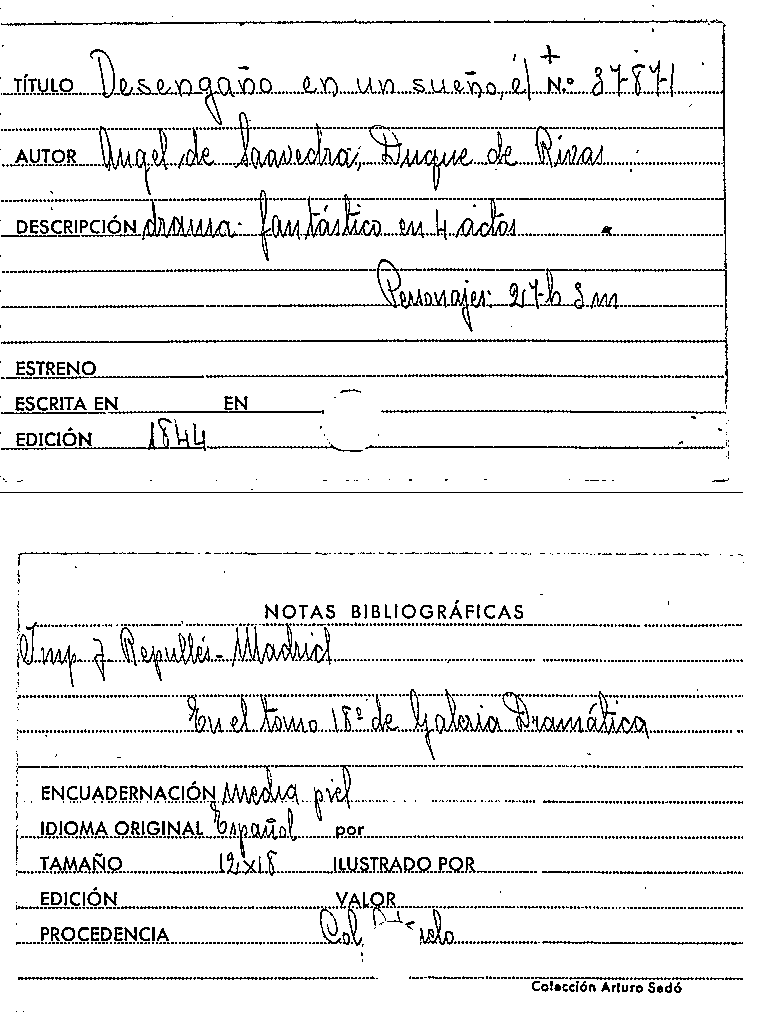 TÍTULO Desengaño en un sueño, el + N.º 37871
AUTOR Angel de Saavedra, Duque de Rivas
DESCRIPCIÓN drama fantástico en 4 actos
Personajes: 27 h 3 m
ESTRENO
ESCRITA EN EN
EDICIÓN 1844
NOTAS BIBLIOGRÁFICAS
Imp. J. Repullés - Madrid
En el tomo 18º de Galeria Dramática
ENCUADERNACIÓN media piel
IDIOMA ORIGINAL Español por
TAMAÑO 12x18 ILUSTRADO POR
EDICIÓN VALOR
PROCEDENCIA Col.
Colección Arturo Sedó